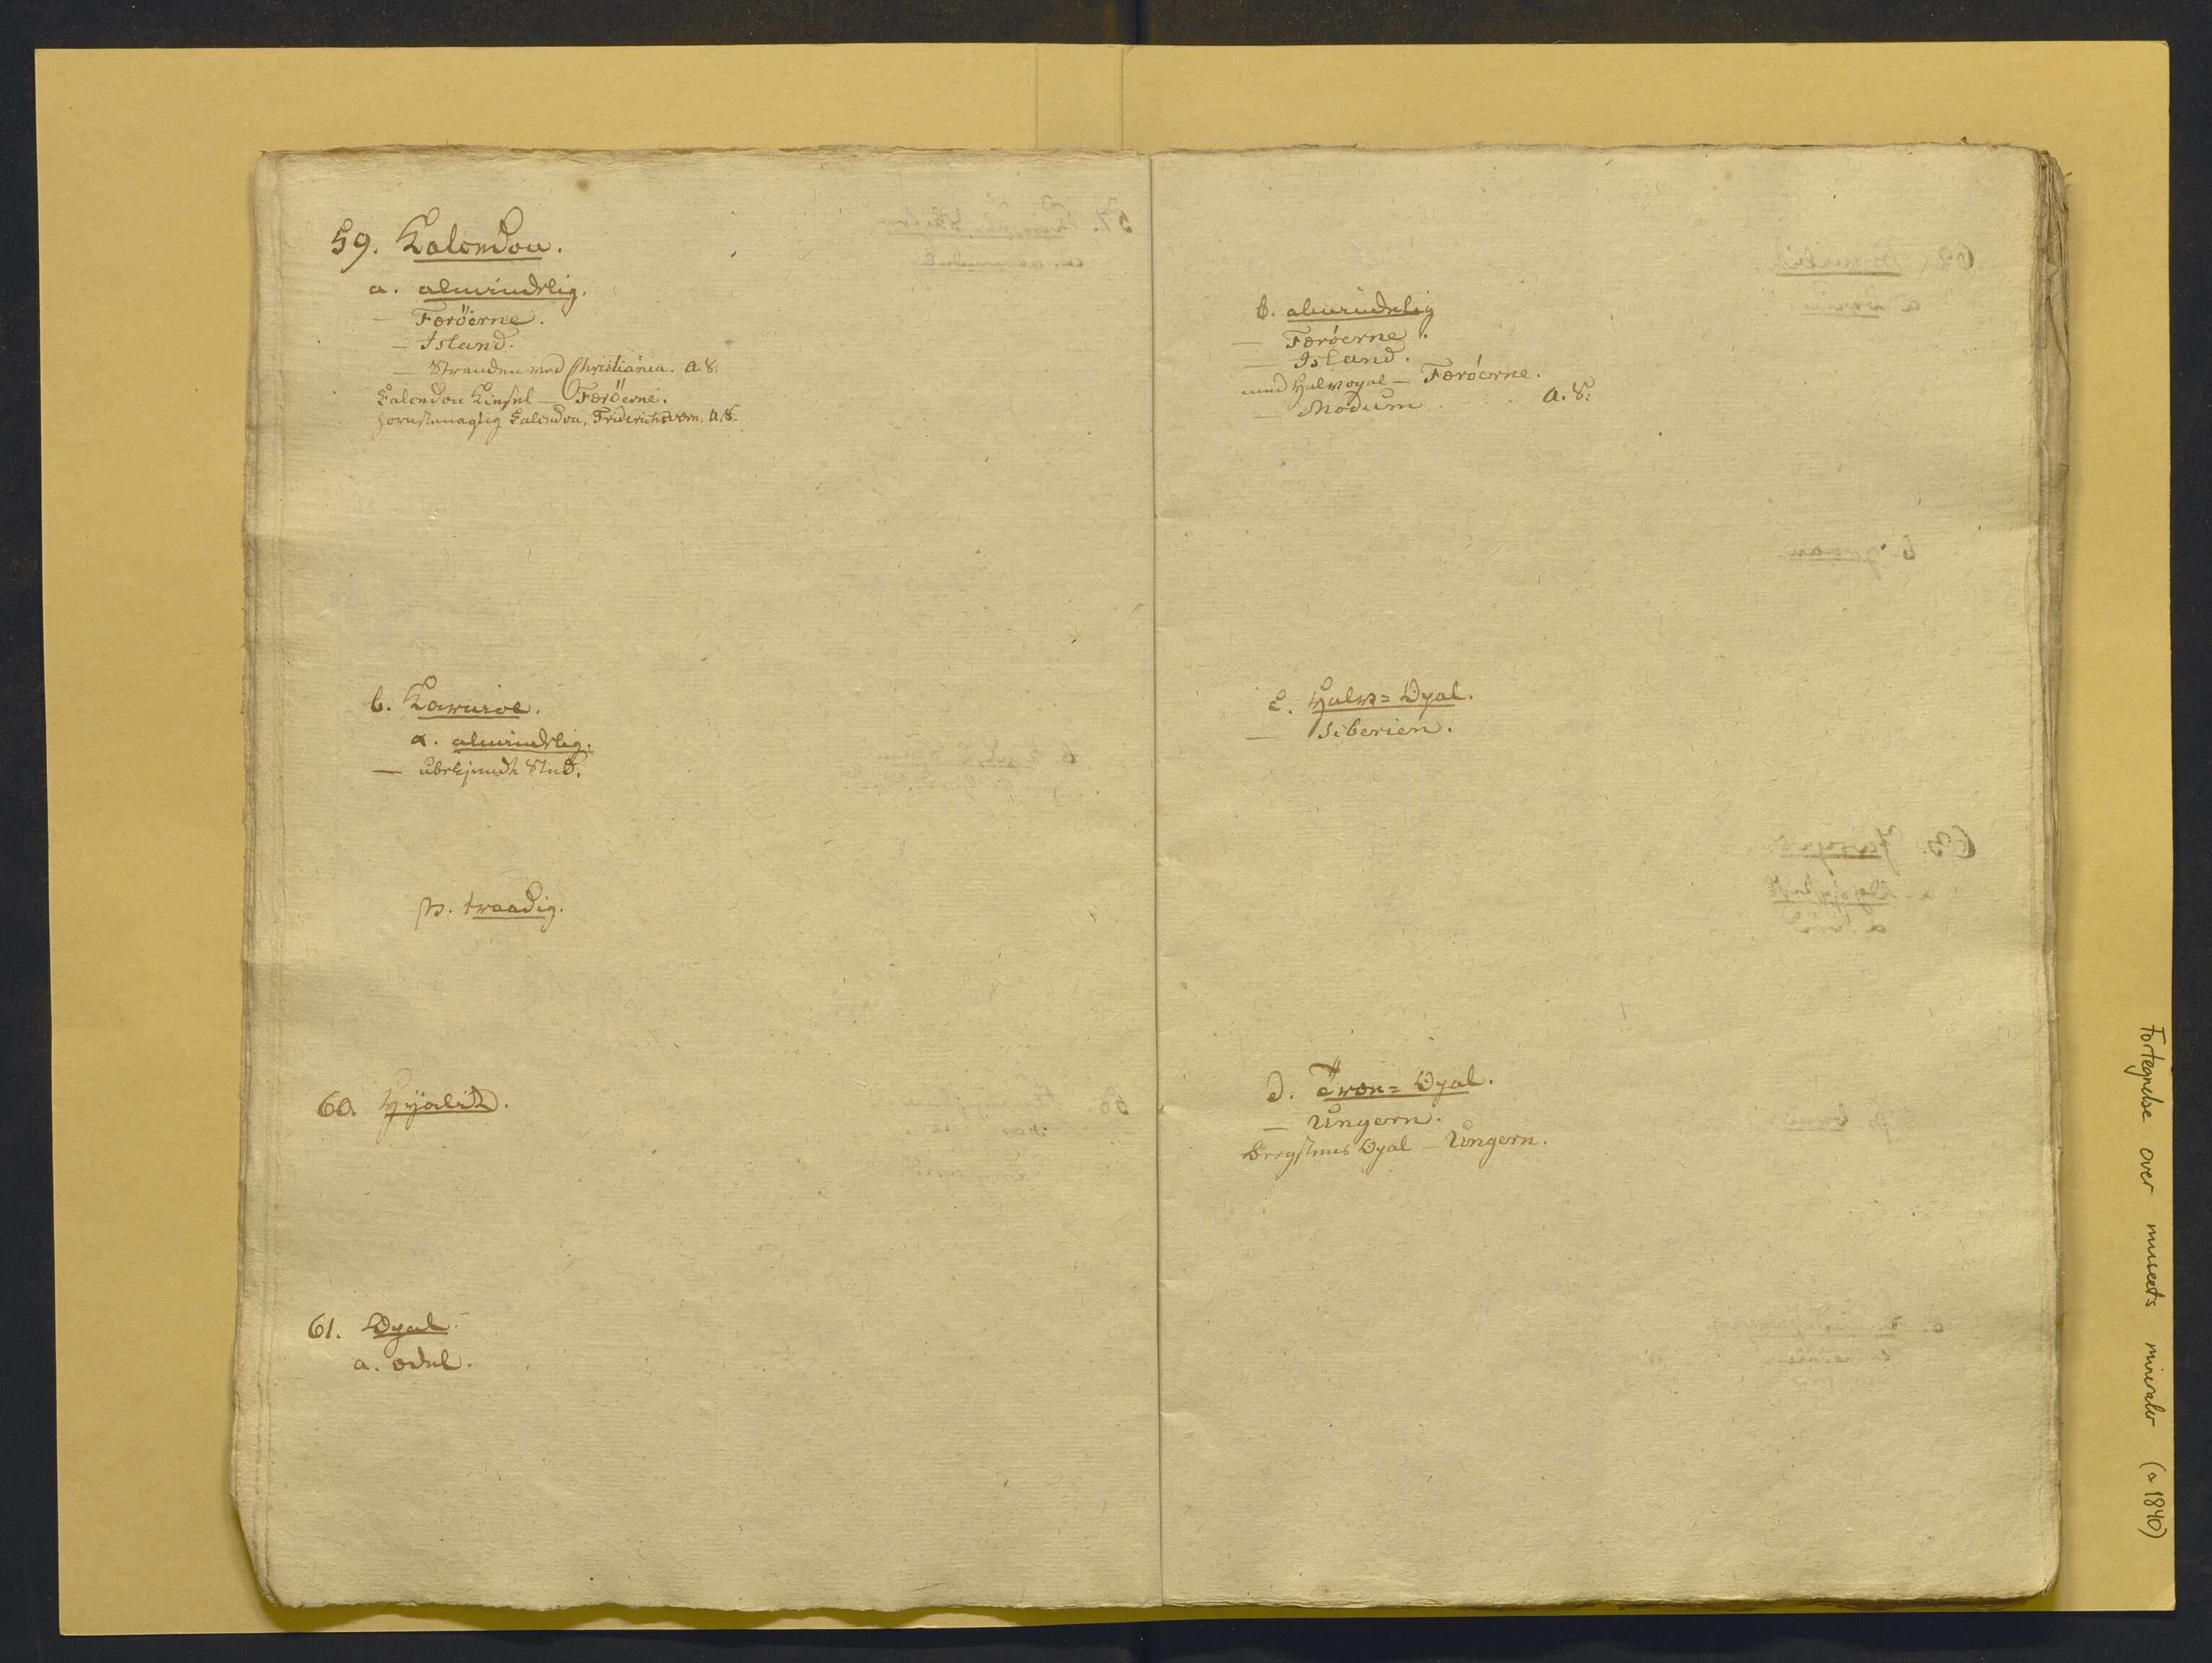 59. Kalcedon.
a. almindelig.
— Færöerne.
— Island.
— Stranden ved Christiania. A. S.
Calcedon Kiesel — Færöerne.
hornsteenagtig Calcedon, Friderichsværn. A. S.
b. Karniol.
α. almindelig.
— ubekjendt Sted.
β. traadig.
60. Hyalith.
61. Opal.
a. ædel.
b. almindelig
— Færöerne.
— Island.
med Halvopal — Færöerne.
— Modum . . . . A. S.
c. Halv=Opal.
— Siberien.
d. Træe=Opal.
— Ungern.
Opal — Ungern.
Fortegnelse over museets mineraler (a 1840)